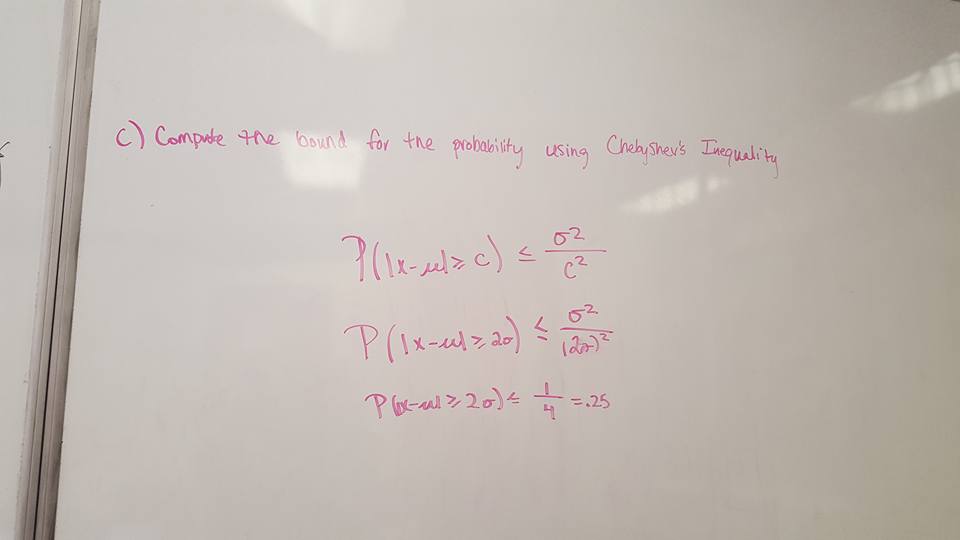 c) Compute the bound for the probability using Chebyshev's Inequality
P(|x-μ| ≥ c) ≤ σ²/c²
P(|x-μ| ≥ 2σ) ≤ σ²/(2σ)²
P(|x-μ| ≥ 2σ) ≤ 1/4 = .25